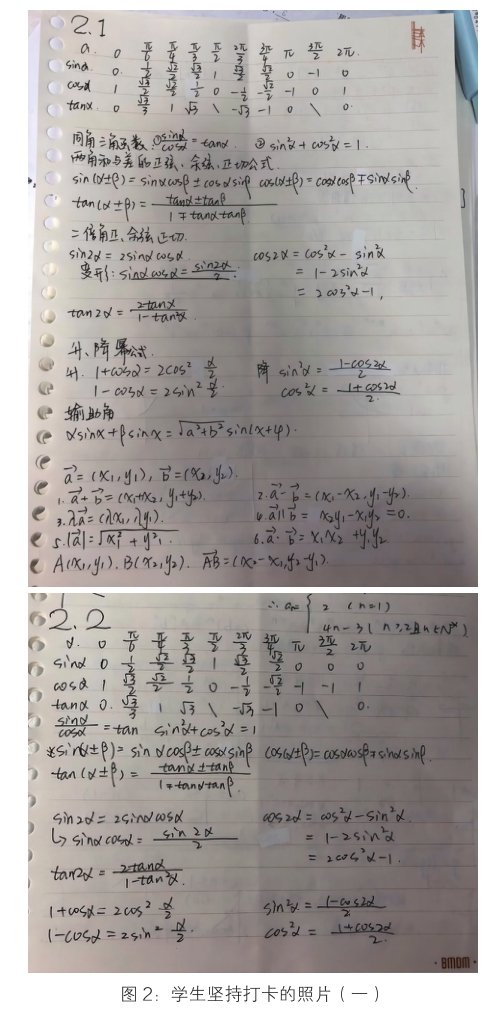 2.1
α. 0 π/6 π/4 π/3 π/2 2π/3 3π/4 π 3π/2 2π.
sinα 0. 1/2 √2/2 √3/2 1 √3/2 √2/2 0 -1 0
cosα 1 √3/2 √2/2 1/2 0 -1/2 -√2/2 -1 0 1
tanα 0 √3/3 1 √3 \ -√3 -1 0 \ 0.
同角三角函数: ① sinα/cosα = tanα ② sin²α + cos²α = 1.
两角和与差的正弦、余弦、正切公式
sin(α±β) = sinαcosβ ± cosαsinβ cos(α±β) = cosαcosβ ∓ sinαsinβ.
tan(α±β) = (tanα±tanβ)/(1∓tanαtanβ)
二倍角正、余弦正切.
sin2α = 2sinαcosα. cos2α = cos²α - sin²α
变形: sinαcosα = sin2α/2. = 1 - 2sin²α
= 2cos²α - 1,
tan2α = 2tanα/(1-tan²α).
升、降幂公式.
升. 1+cosα = 2cos² α/2 降 sin²α = (1-cos2α)/2
1-cosα = 2sin² α/2. cos²α = (1+cos2α)/2.
输助角
αsinx + βsinx = √(a²+b²) sin(x+φ).
a⃗ = (x₁, y₁), b⃗ = (x₂, y₂).
1. a⃗ + b⃗ = (x₁+x₂, y₁+y₂). 2. a⃗ - b⃗ = (x₁-x₂, y₁-y₂).
3. λa⃗ = (λx₁, λy₁). 4. a⃗∥b⃗ = x₂y₁ - x₁y₂ = 0.
5. |a⃗| = √(x₁² + y²₁. 6. a⃗·b⃗ = x₁x₂ + y₁y₂
A(x₁, y₁). B(x₂, y₂). AB⃗ = (x₂-x₁, y₂-y₁).
∴ aₙ = { 2 (n=1)
2.2 4n-3 (n≥2且n∈N*)
α. 0 π/6 π/4 π/3 π/2 2π/3 3π/4 π 3π/2 2π
sinα 0 1/2 √2/2 √3/2 1 √3/2 √2/2 0 0 0
cosα 1 √3/2 √2/2 1/2 0 -1/2 -√2/2 -1 -1 1
tanα 0. √3/3 1 √3 \ -√3 -1 0 \ 0.
sinα/cosα = tan sin²α+cos²α = 1
*sin(α±β) = sinαcosβ ± cosαsinβ cos(α±β) = cosαcosβ ∓ sinαsinβ.
tan(α±β) = (tanα±tanβ)/(1∓tanαtanβ)
sin2α = 2sinαcosα cos2α = cos²α - sin²α.
↳ sinαcosα = sin2α/2 = 1 - 2sin²α
= 2cos²α - 1.
tan2α = 2tanα/(1-tan²α).
1+cosα = 2cos² α/2 sin²α = (1-cos2α)/2
1-cosα = 2sin² α/2. cos²α = (1+cos2α)/2.
·BMDM·
图 2：学生坚持打卡的照片（一）